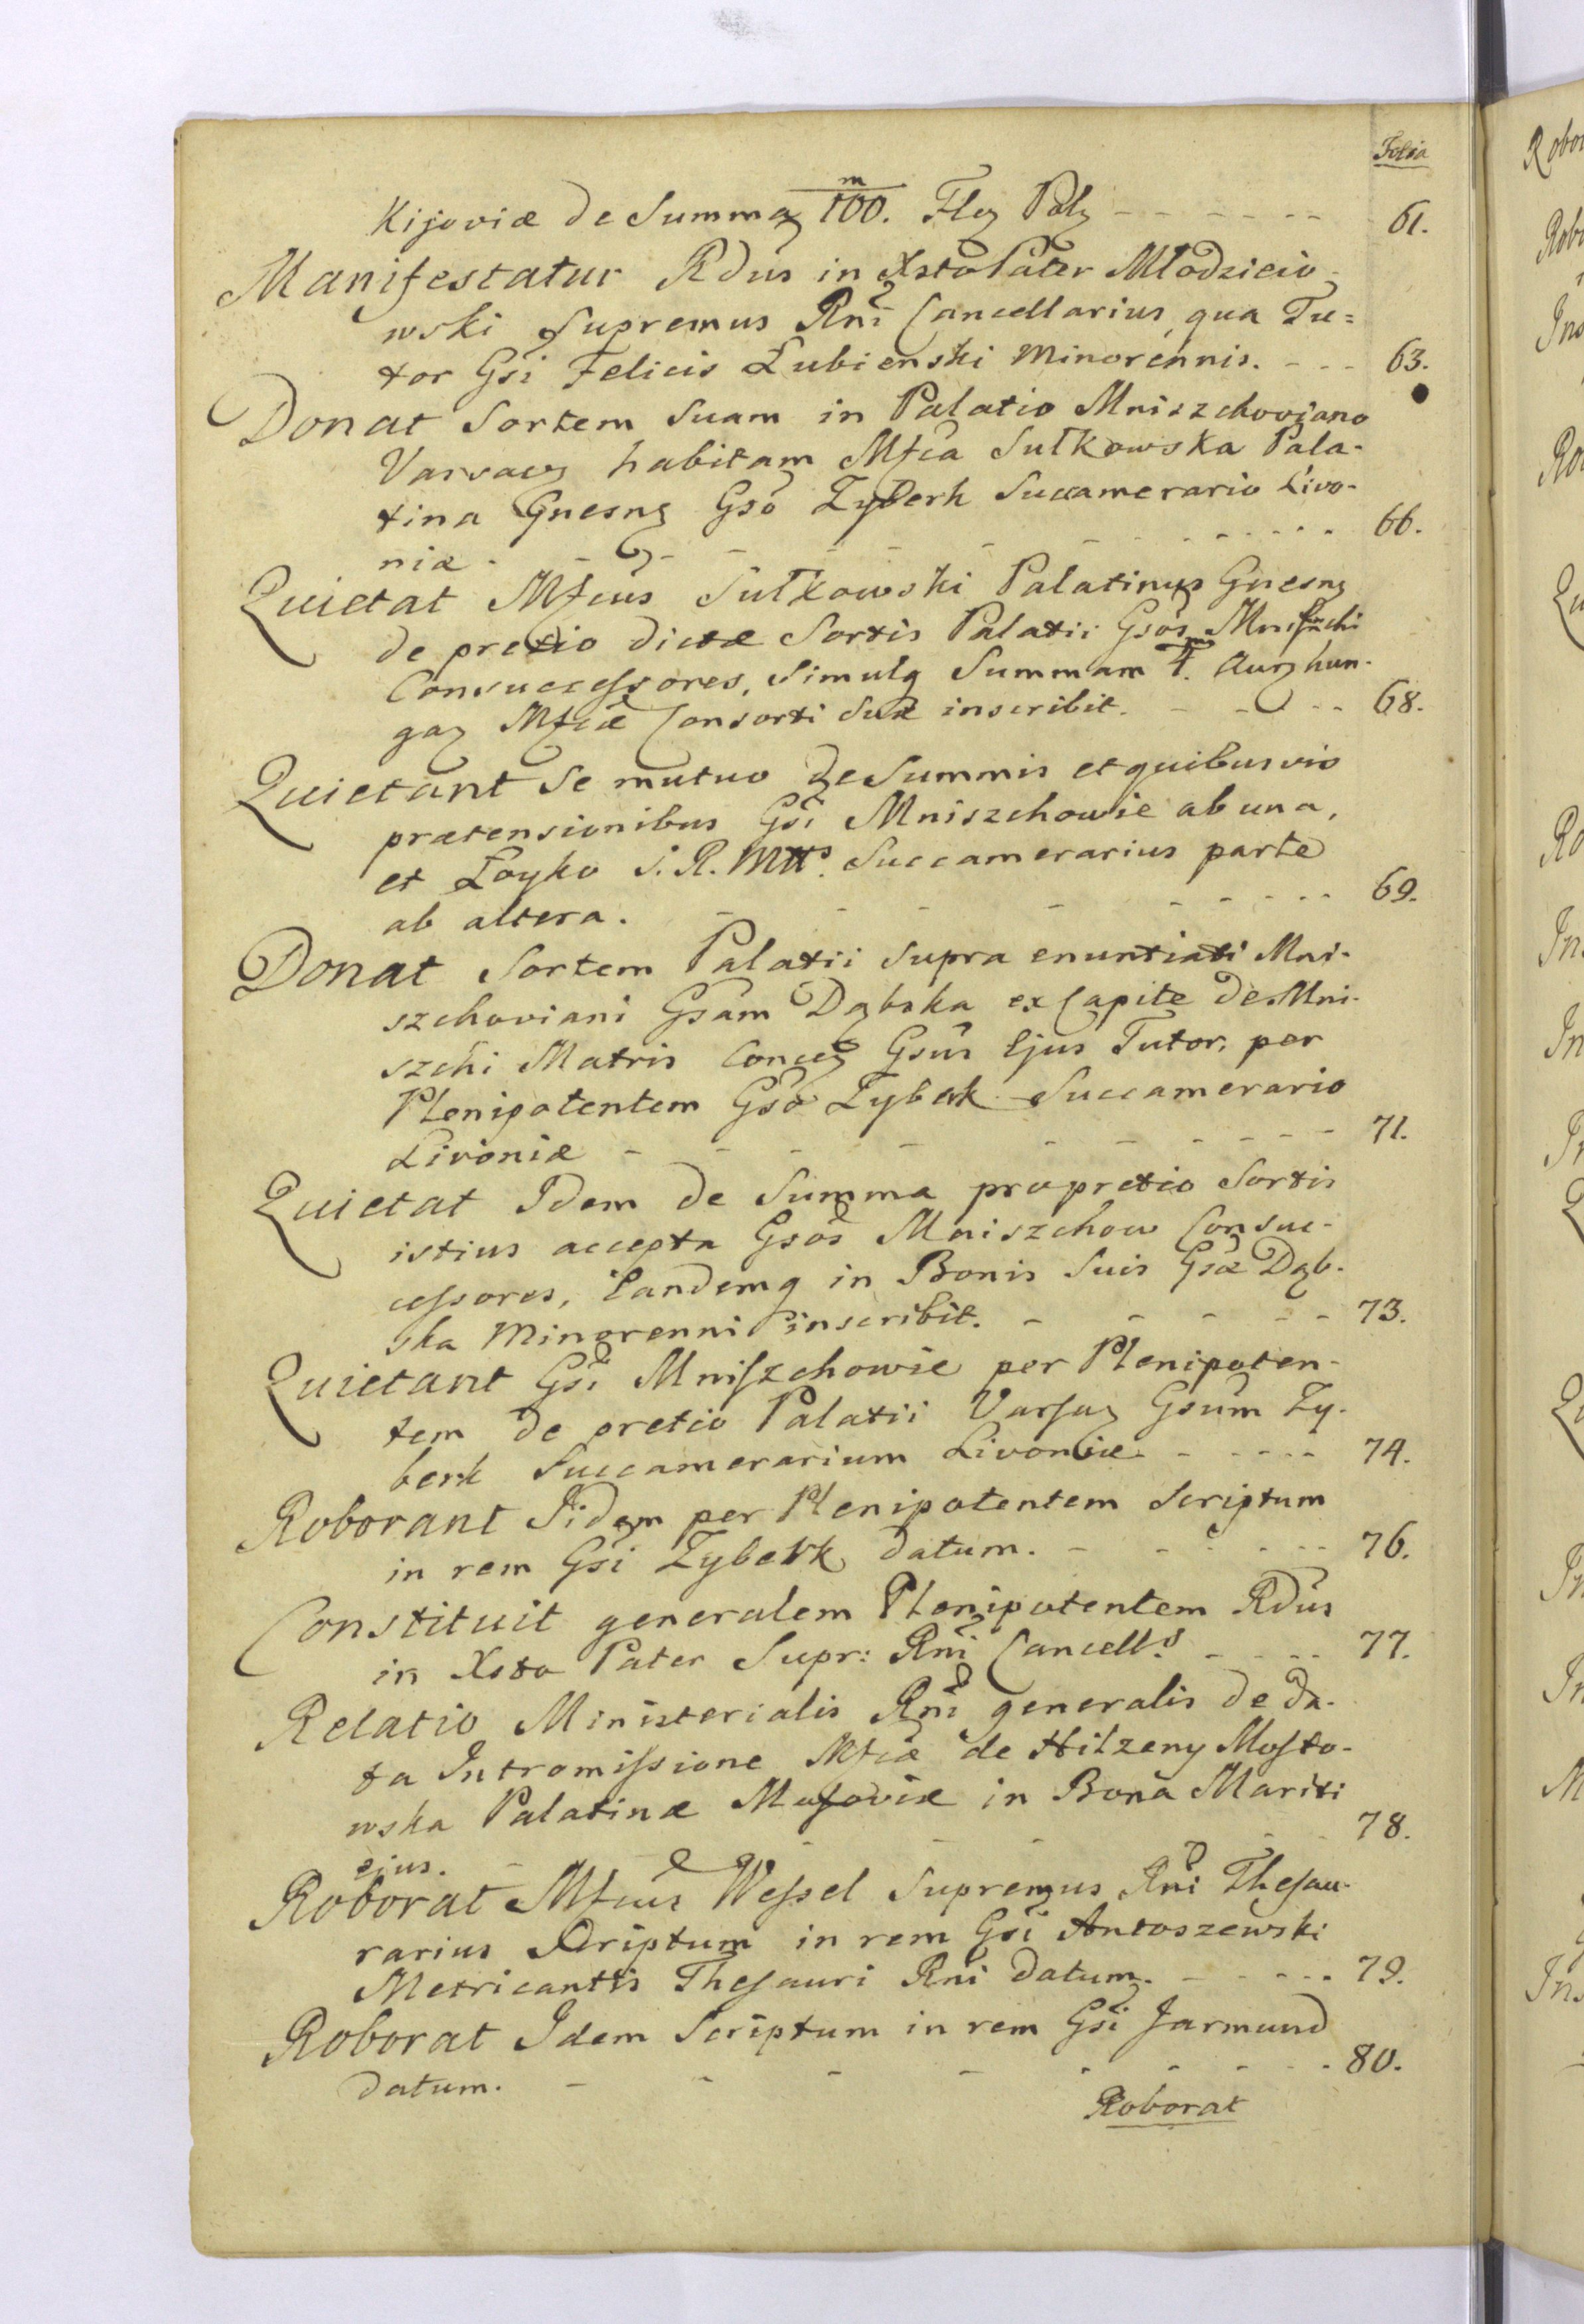 Folia
Kijoviæ de Summaʒ m/100. Floʒ Polʒ - - - - - - 61.
Manifestatur Rdus in Xsto Pater Młodzieio-
wski Supremus Rni Cancellarius, qua Tu=
tor Gsi Felicis Łubienski Minorennis. - - - 63.
Donat Sortem Suam in Palatio Mniszchoviano
Varsaeʒ habitam Mfca Sułkowska Pala-
tina Gnesnʒ Gso Zyberk Succamerario Livo-
niæ. - - - - - - - - - - - 66.
Quietat Mfcus Sułkowski Palatinus Gnesnʒ
de pretio dictæ Sortis Palatii Gsos Mniszchi
Consuccessores, Simulq Summam m/4. Aurʒ hun-
gaʒ Mfcæ Consorti Suæ inscribit. - - - - 68.
Quietant Se mutuo de Summis et quibusvis
prætensionibus Gsi Mniszchowie ab una,
et Łoyko S. R. Mtts. Succamerarius parte
ab altera. - - - - - - - - - 69.
Donat Sortem Palatii Supra enuntiati Mni-
szchoviani Gsam Dąbska ex Capite de Mni-
szchi Matris Conceʒ Gsus Ejus Tutor, per
Plenipotentem Gso Zyberk Succamerario
Livoniæ - - - - - - - - - - 71.
Quietat Idem de Summa pro pretio Sortis
istius accepta Gsos Mniszchow Consuc-
cessores, Eandemq in Bonis Suis Gsæ Dąb-
ska Minorenni inscribit. - - - - - - 73.
Quietant Gsi Mniszchowie per Plenipoten-
tem de pretio Palatii Varsaʒ Gsum Zy-
berk Succamerarium Livoniæ. - - - - - 74.
Roborant Iidem per Plenipotentem Scriptum
in rem Gsi Zyberk datum. - - - - - - 76.
Constituit generalem Plenipotentem Rdus
in Xsto Pater Supr: Rni Cancells. - - - - 77.
Relatio Ministerialis Rni generalis de da-
ta Intromissione Mfcæ de Hilzeny Mosto-
wska Palatinæ Masoviæ in Bona Mariti
ejus. - - - - - - 78.
Roborat Mfcus Wessel Supremus Rni Thesau-
rarius Scriptum in rem Gsi Antoszewski
Metricantis Thesauri Rni datum. - - - - - 79.
Roborat Idem Scriptum in rem Gsi Jarmund
datum. - - - - - - - - 80.
Roborat